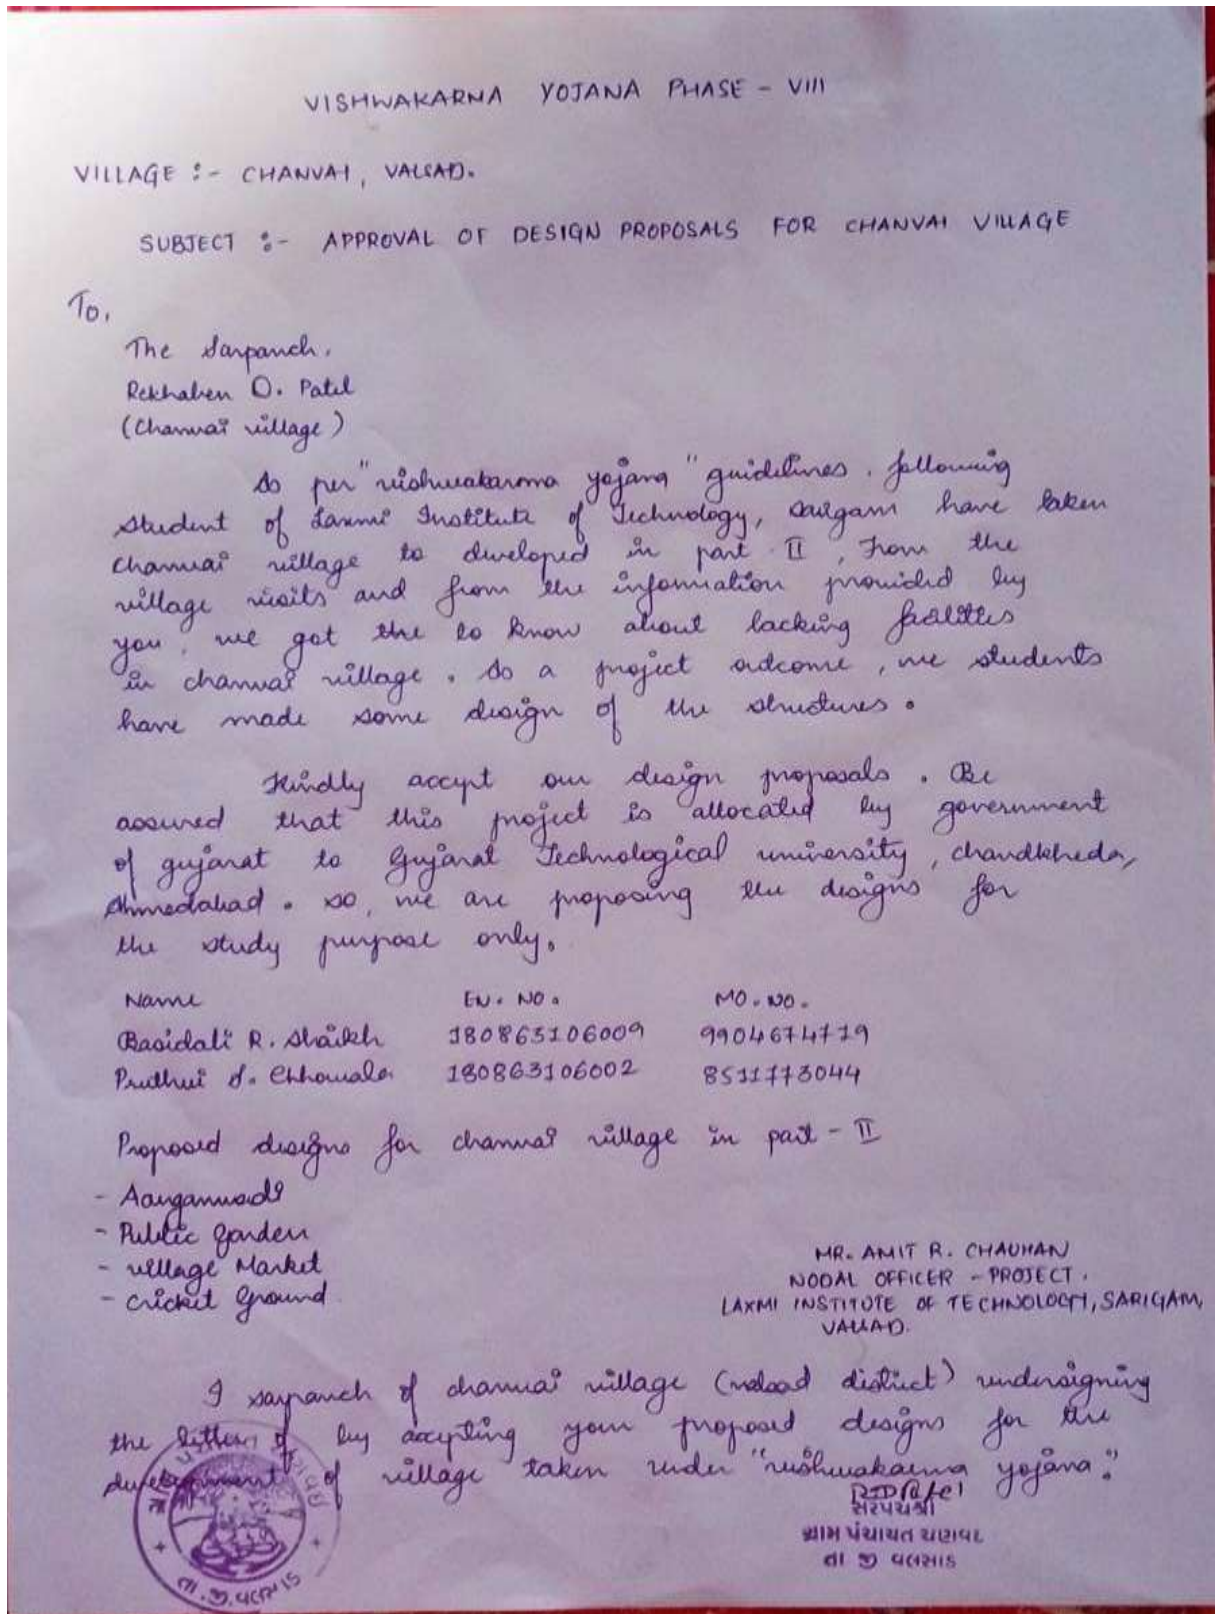 VISHWAKARNA YOJANA PHASE - VIII
VILLAGE :- CHANVAI, VALSAD.
SUBJECT :- APPROVAL OF DESIGN PROPOSALS FOR CHANVAI VILLAGE
To,
The Sarpanch,
Rekhaben D. Patel
(Chanvai village)
As per "vishwakarma yojana" guidelines. following
student of Laxmi Institute of Technology, sarigam have taken
chanvai village to dveloped in part II, From the
village visits and from the information provided by
you, we got the to know about lacking facilities
in chanvai village. As a project outcome, we students
have made some design of the structures.
Kindly accept our design proposals. Be
assured that this project is allocated by government
of gujarat to Gujarat Technological university, chandkheda,
Ahmedabad. so, we are proposing the designs for
the study purpose only.
Name EN. NO. MO. NO.
Basidali R. Shaikh 180863106009 9904674779
Pruthvi S. Chhowala 180863106002 8511773044
Proposed designs for chanvai village in part - II
- Aanganwadi
- Public Garden
- village Market
- Cricket Ground
MR. AMIT R. CHAUHAN
NODAL OFFICER - PROJECT.
LAXMI INSTITUTE OF TECHNOLOGY, SARIGAM,
VALSAD.
I sarpanch of chanvai village (valsad district) undersigning
the letter of by accepting your proposed designs for the
development of village taken under "vishwakarma yojana."
RDPatel
સરપંચશ્રી
ગ્રામ પંચાયત ચણવઇ
તા જી વલસાડ
તા.જી.વલસાડ